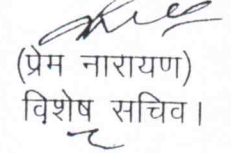 (प्रेम नारायण)
विशेष सचिव।